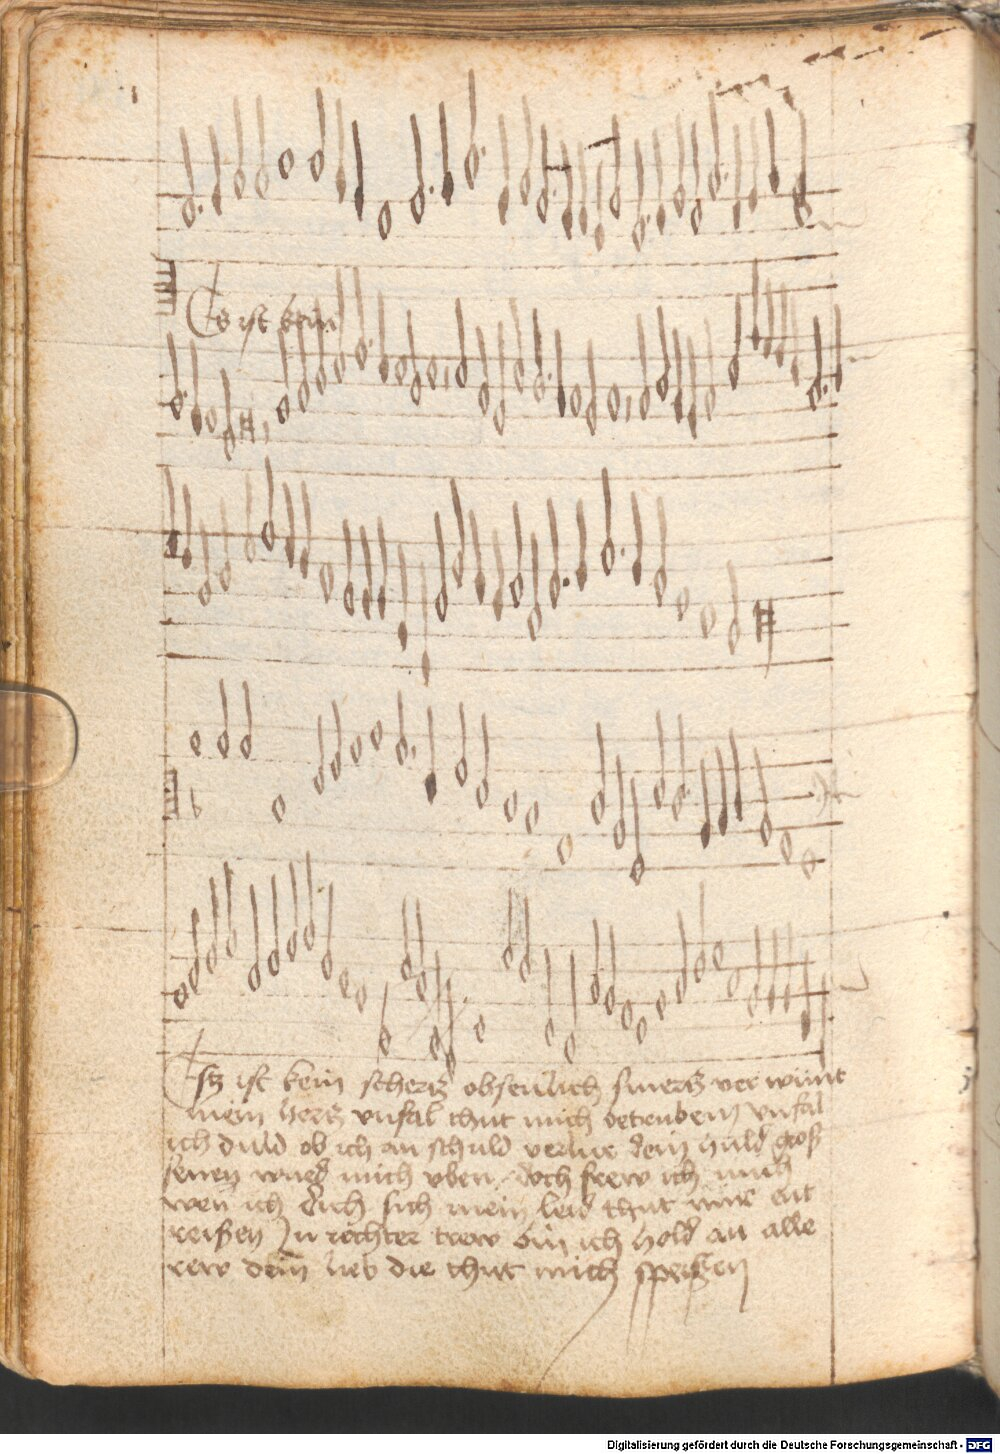 Es ist kein
Es ist kein schertz obsenlich smertz ver wunt
mein hertz vnfal thut mich betruben vnfal
ich duld ob ich an schuld verlur dein huld groß
senen wurd mich vben doch frew ich mich
wen ich dich sich mein leid thut mir ent
reißen In rechter trew bin ich hold an alle
rew dein lieb die thut mich speißen
Digitalisierung gefördert durch die Deutsche Forschungsgemeinschaft - DFG